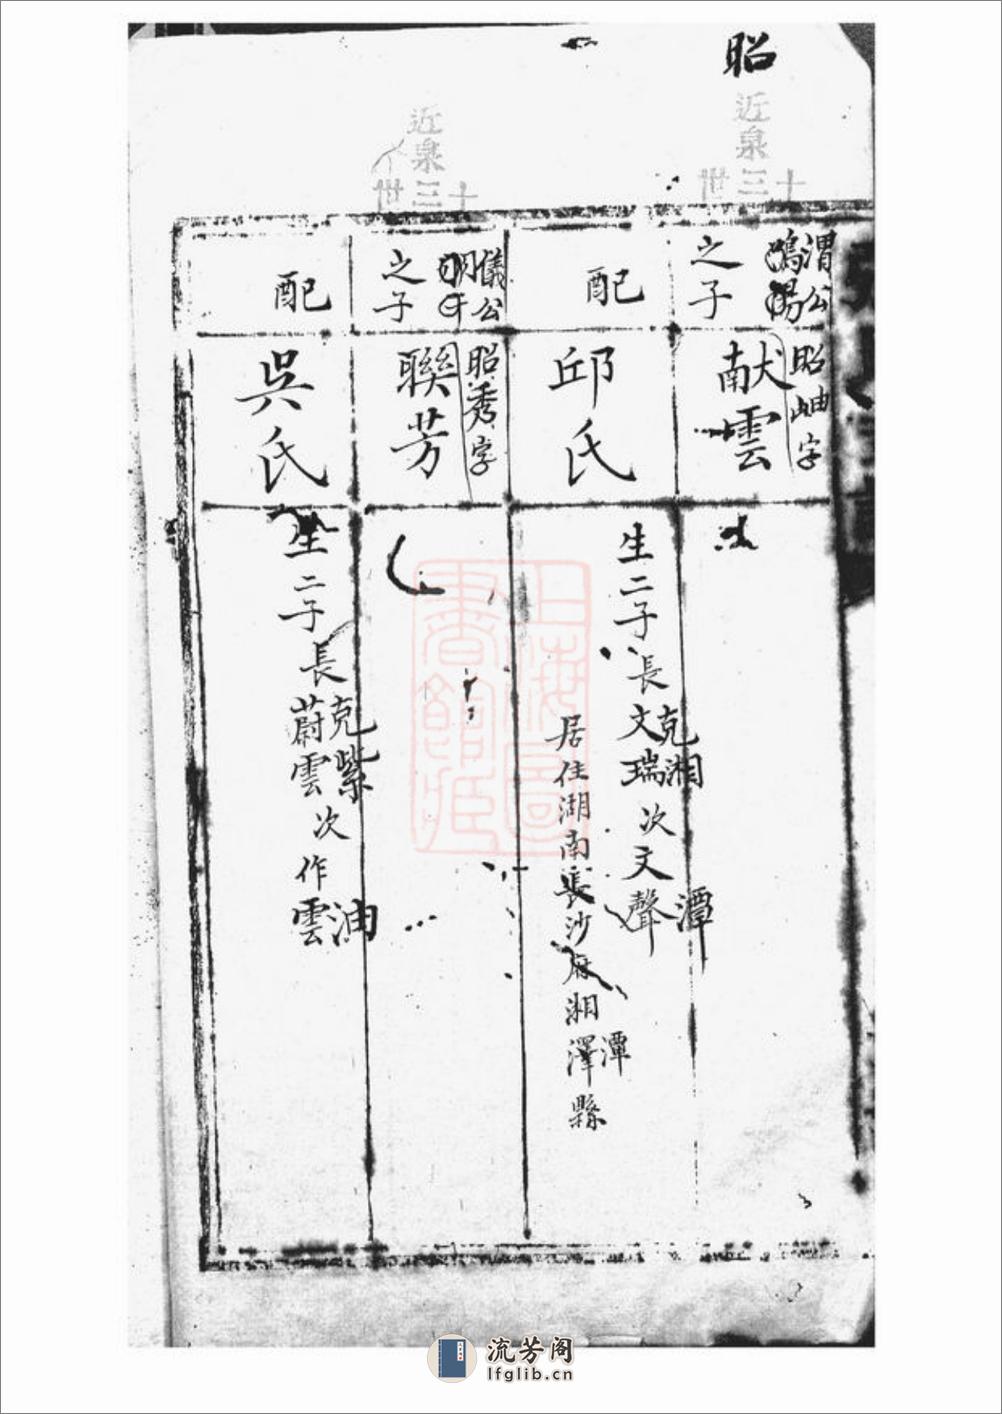 昭
近泉
十三世
渭公
之子
昭岫字
献雲
配
邱氏
生二子長克湘文瑞次文聲潭
居住湖南長沙府湘澤潭縣
近泉
十三世
儀公
之子
昭秀字
聯芳
配
吳氏
生二子長克紫蔚雲次作雲油
上海圖書館藏
流芳阁
lfglib.cn